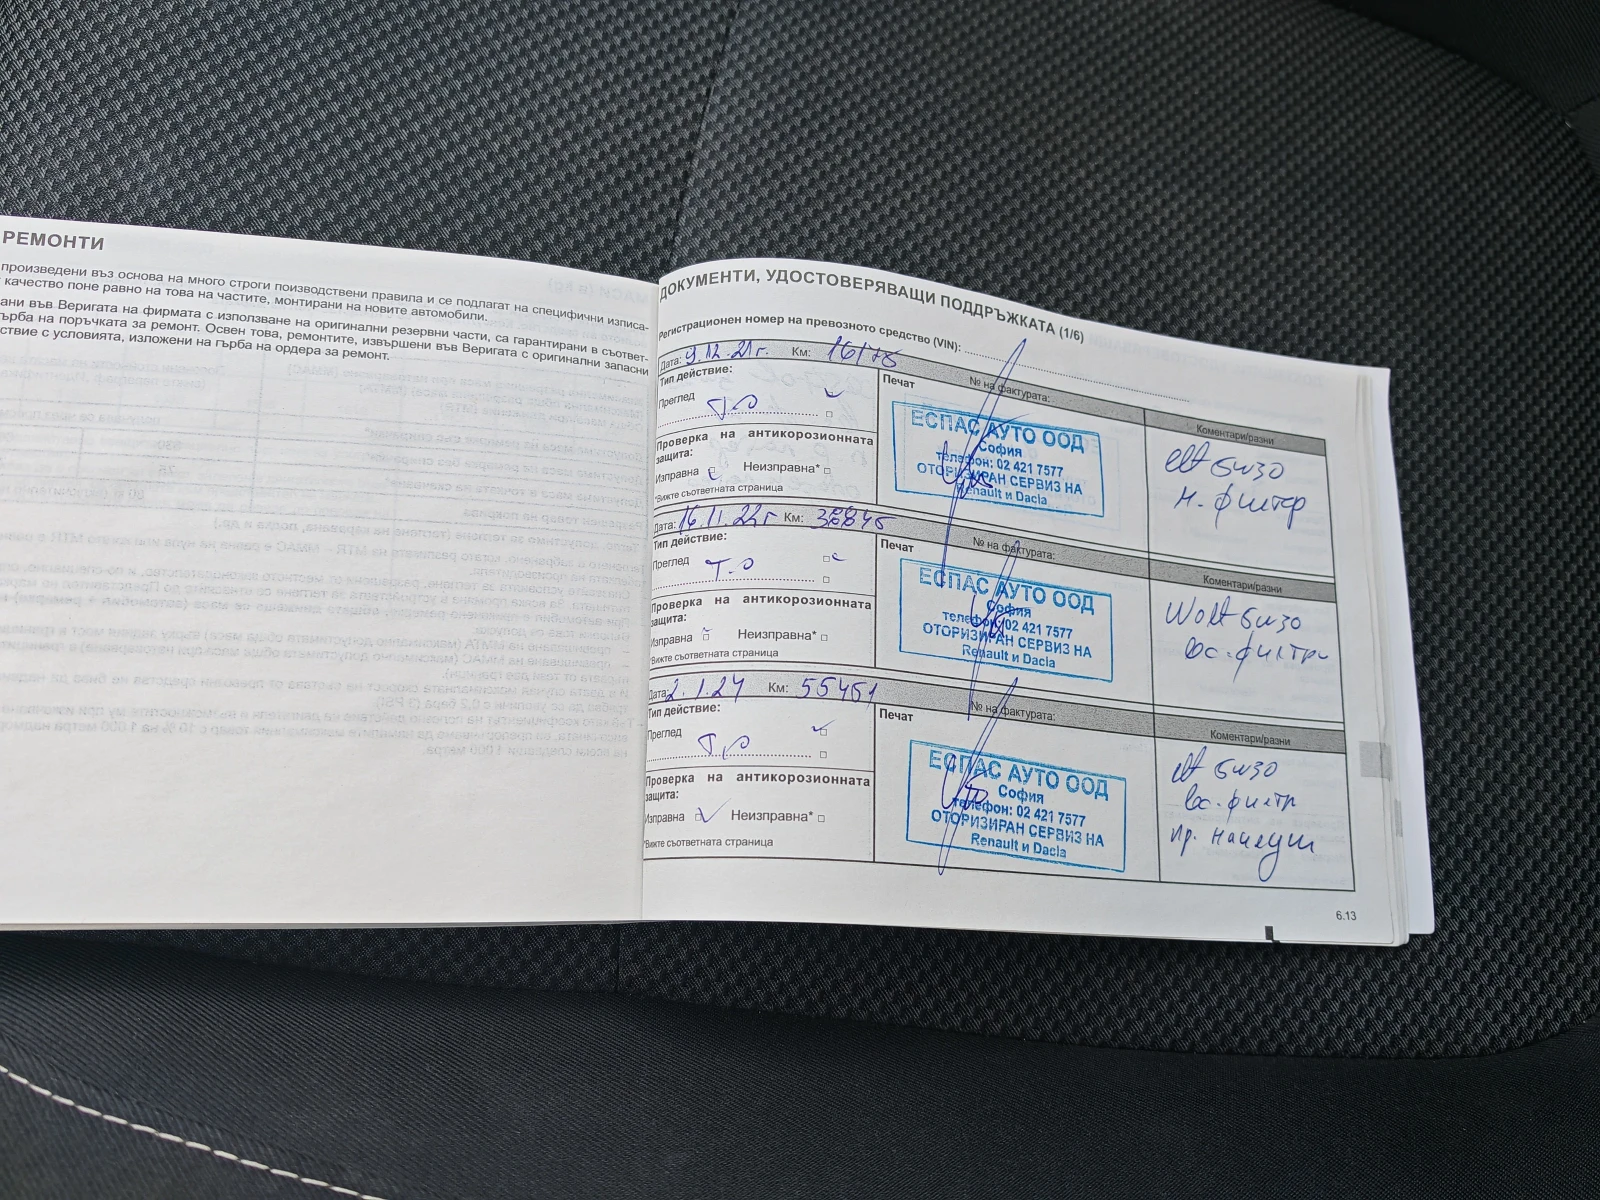 РЕМОНТИ
произведени въз основа на много строги поизводствени правила и се подлагат на специфични изписа-
качество поне равно на това на частите, монтирани на новите автомобили.
ани във Веригата на фирмата с използване на оригинални резервни части, са гарантирани в съответ-
гърба на поръчката за ремонт. Освен това, ремонтите, извършени във Веригата с оригинални запасни
ствие с условията, изложени на гърба на ордера за ремонт.
ДОКУМЕНТИ, УДОСТОВЕРЯВАЩИ ПОДДРЪЖКАТА (1/6)
Регистрационен номер на превозното средство (VIN):
Дата: 9.12.21г. Км: 16178
Тип действие:
Преглед
Т.О
Проверка на антикорозионната
защита:
Изправна Неизправна*
*Вижте съответната страница
Печат
№ на фактурата:
ЕСПАС АУТО ООД
София
телефон: 02 421 7577
ОТОРИЗИРАН СЕРВИЗ НА
Renault и Dacia
Коментари/разни
н. филтър
Дата: 16.11.22г Км: 36845
Тип действие:
Преглед
Т.О
Проверка на антикорозионната
защита:
Изправна Неизправна*
*Вижте съответната страница
Печат
№ на фактурата:
ЕСПАС АУТО ООД
София
телефон: 02 421 7577
ОТОРИЗИРАН СЕРВИЗ НА
Renault и Dacia
Коментари/разни
Дата: 2.1.24 Км: 55451
Тип действие:
Преглед
Т.О
Проверка на антикорозионната
защита:
Изправна Неизправна*
*Вижте съответната страница
Печат
№ на фактурата:
ЕСПАС АУТО ООД
София
телефон: 02 421 7577
ОТОРИЗИРАН СЕРВИЗ НА
Renault и Dacia
Коментари/разни
6.13